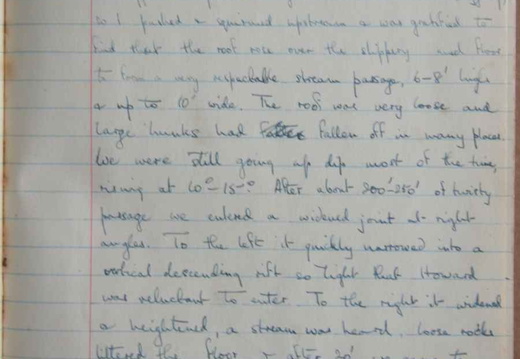 so I pushed & squirmed upstream & was gratified to
find that the roof rose over the slippery mud floor
to form a very respectable stream passage, 6-8' high
& up to 10' wide. The roof was very loose and
large hunks had fallen off in many places.
We were still going up dip most of the time,
rising at 10°-15° After about 200'-250' of twisty
passage we entered a widened joint at right
angles. To the left it quickly narrowed into a
vertical descending rift so tight that Howard
was reluctant to enter. To the right it widened
& heightened, a stream was heard. Loose rocks
littered the floor & after 30'